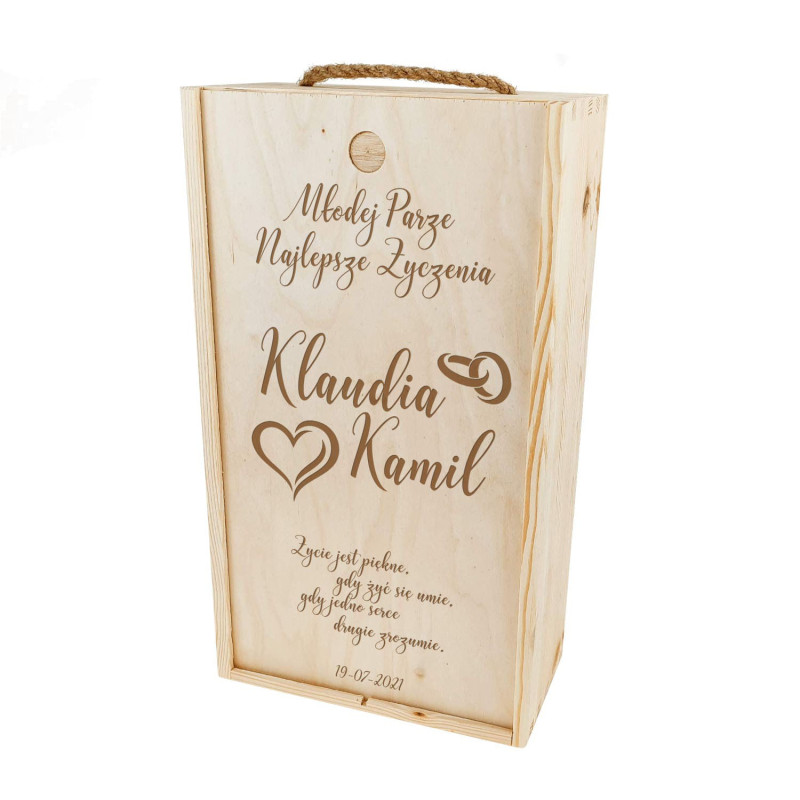 Młodej Parze
Najlepsze Życzenia
Klaudia
Kamil
Życie jest piękne,
gdy żyć się umie,
gdy jedno serce
drugie zrozumie.
19-07-2021